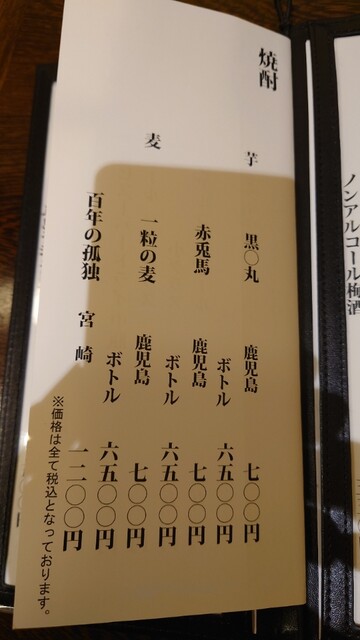 焼酎
芋 黒〇丸 鹿児島 七〇〇円
ボトル 六五〇〇円
赤兎馬 鹿児島 七〇〇円
ボトル 六五〇〇円
麦 一粒の麦 鹿児島 七〇〇円
ボトル 六五〇〇円
百年の孤独 宮崎 一二〇〇円
※価格は全て税込となっております。
ノンアルコール梅酒